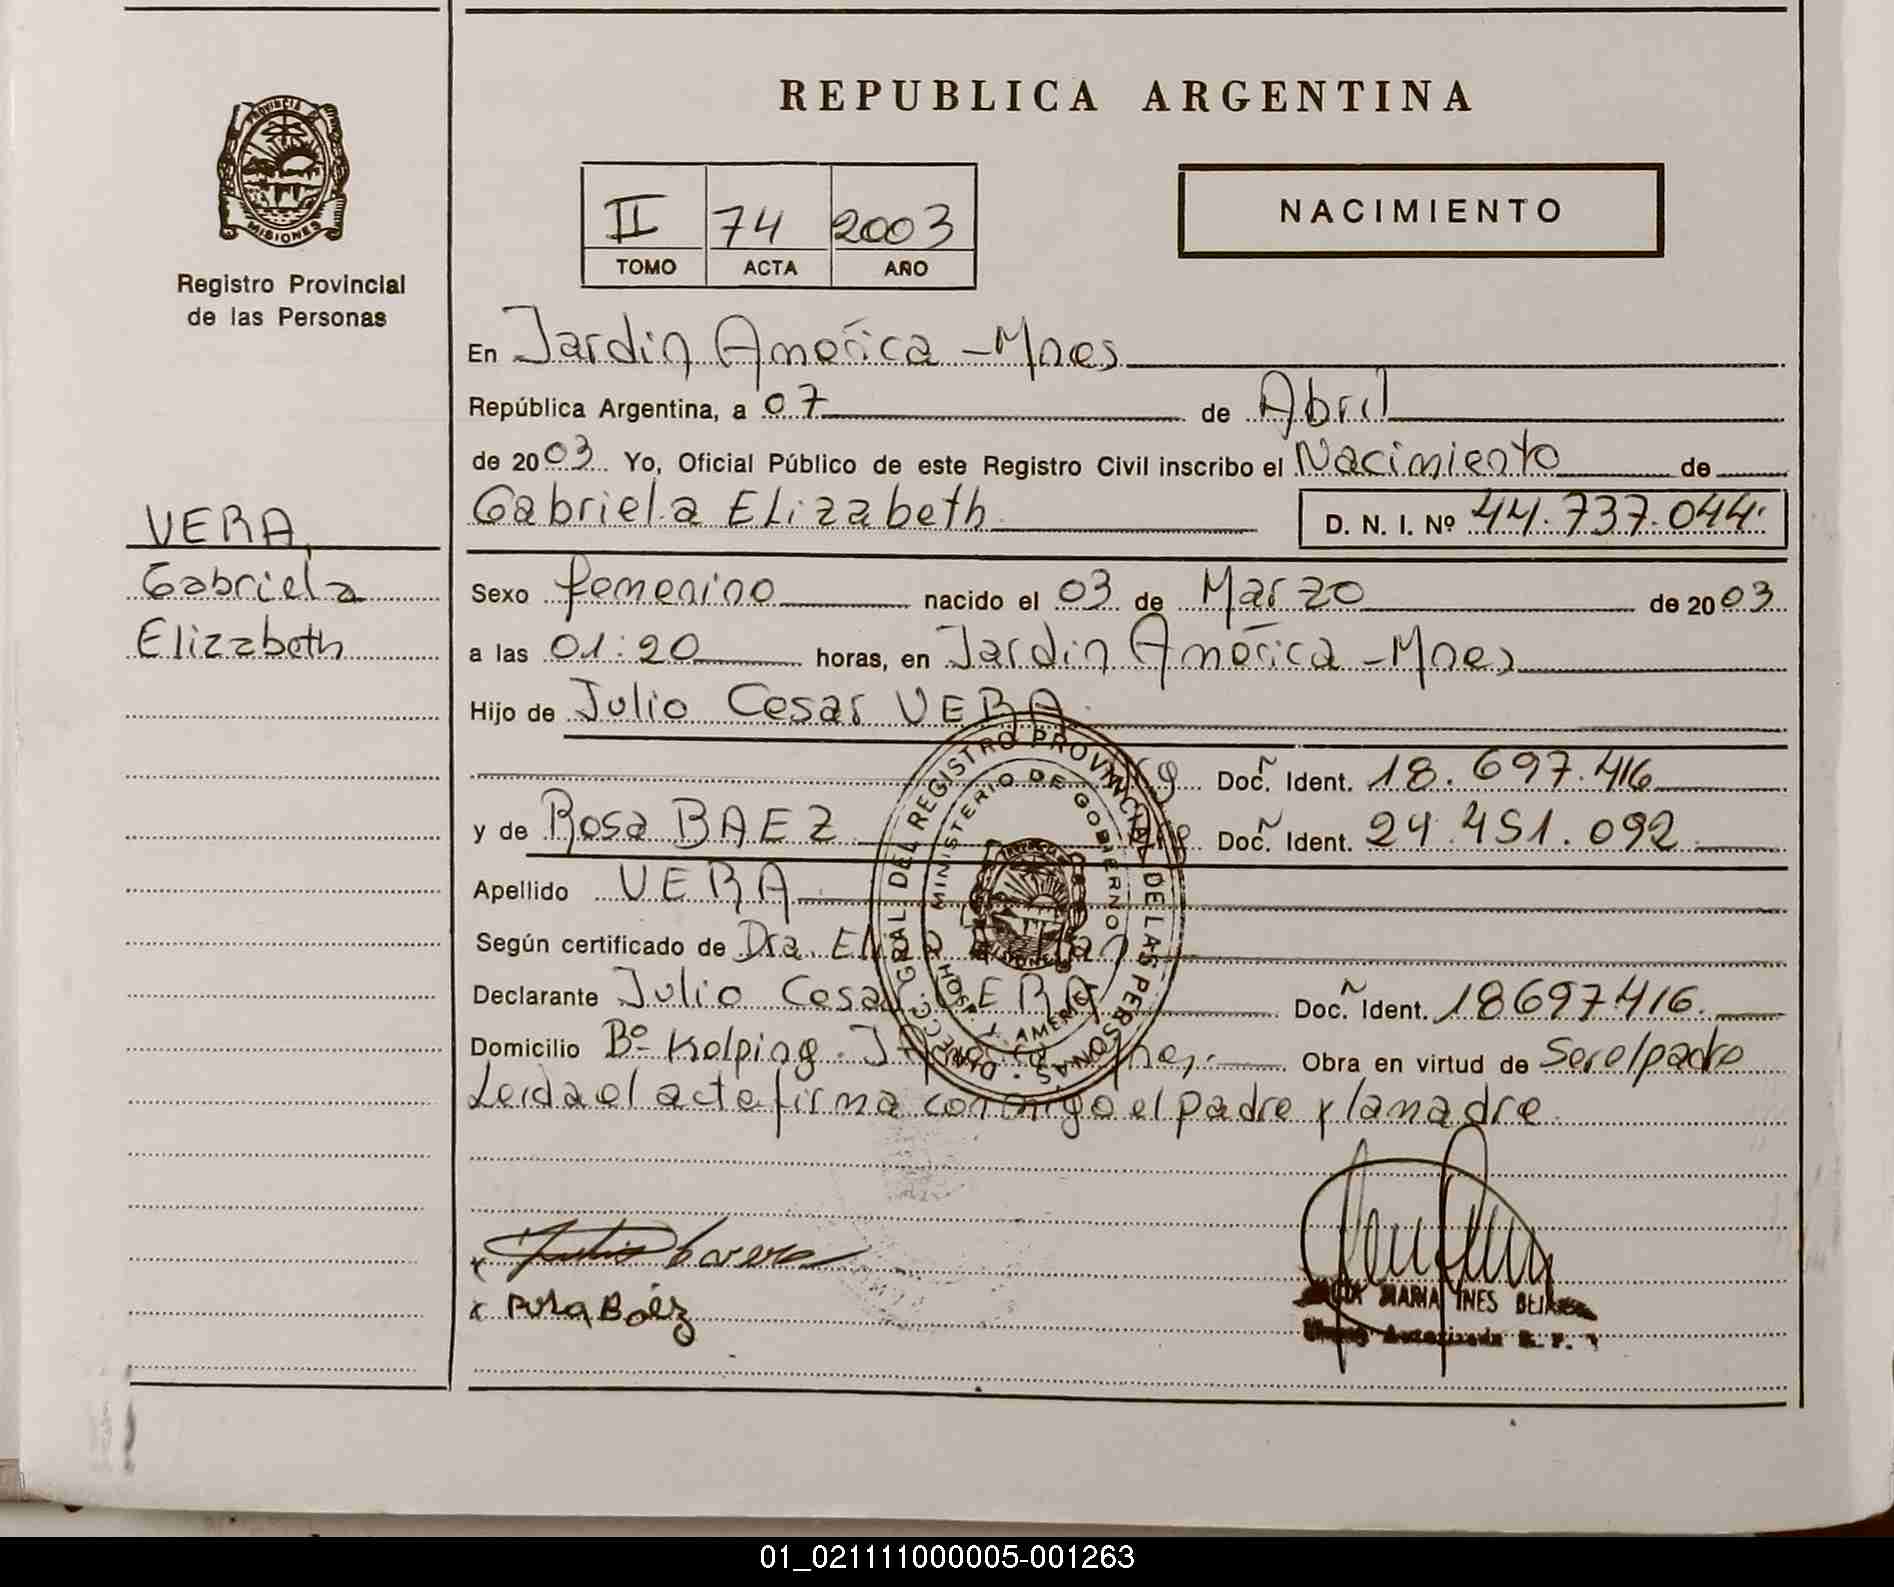 REPUBLICA ARGENTINA
PROVINCIA DE
MISIONES
Registro Provincial
de las Personas
II 74 2003
TOMO ACTA AÑO
NACIMIENTO
VERA,
Gabriela
Elizabeth
En Jardin América - Mnes
República Argentina, a 07 de Abril
de 2003 Yo, Oficial Público de este Registro Civil inscribo el Nacimiento de
Gabriela Elizabeth D. N. I. Nº 44.737.044.
Sexo femenino nacido el 03 de Marzo de 2003
a las 01:20 horas, en Jardin América - Mnes
Hijo de Julio Cesar VERA
Doc. Ident. 18.697.416
y de Rosa BAEZ Doc. Ident. 24.451.092
Apellido VERA
Según certificado de Dra.
Declarante Julio Cesar VERA Doc. Ident. 18697416.
Domicilio Bº Kolping. Obra en virtud de Ser el padre
Leida el acta firma conmigo el padre y la madre.
DIRECC. GRAL DEL REGISTRO PROVINCIAL DE LAS PERSONAS
MINISTERIO DE GOBIERNO
x
x Rosa Baéz
MARIA INES
Autorizada R. P.
01_021111000005-001263